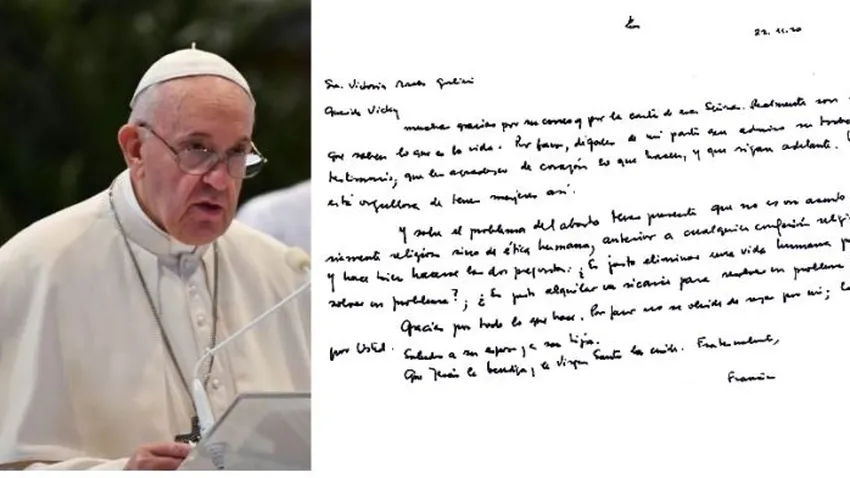 22.11.20
Sra. Victoria Morales Gorleri
Querida Vicky
muchas gracias por su correo y por la carta de esas Señoras. Realmente son
que saben lo que es la vida. Por favor, dígales de mi parte que admiro su trabajo
testimonio; que les agradezco de corazón lo que hacen, y que sigan adelante.
está orgullosa de tener mujeres así.
Y sobre el problema del aborto tener presente que no es un asunto
religioso sino de ética humana, anterior a cualquier confesión
y hace bien hacerse las dos preguntas: ¿Es justo eliminar una vida humana
resolver un problema?; ¿Es justo alquilar un sicario para resolver un problema
Gracias por todo lo que hace. Por favor no se olvide de rezar por mi; lo
por Usted. Saludos a su esposo y a sus hijos.
Que Jesús la bendiga y la Virgen Santa la cuide. Fraternalmente,